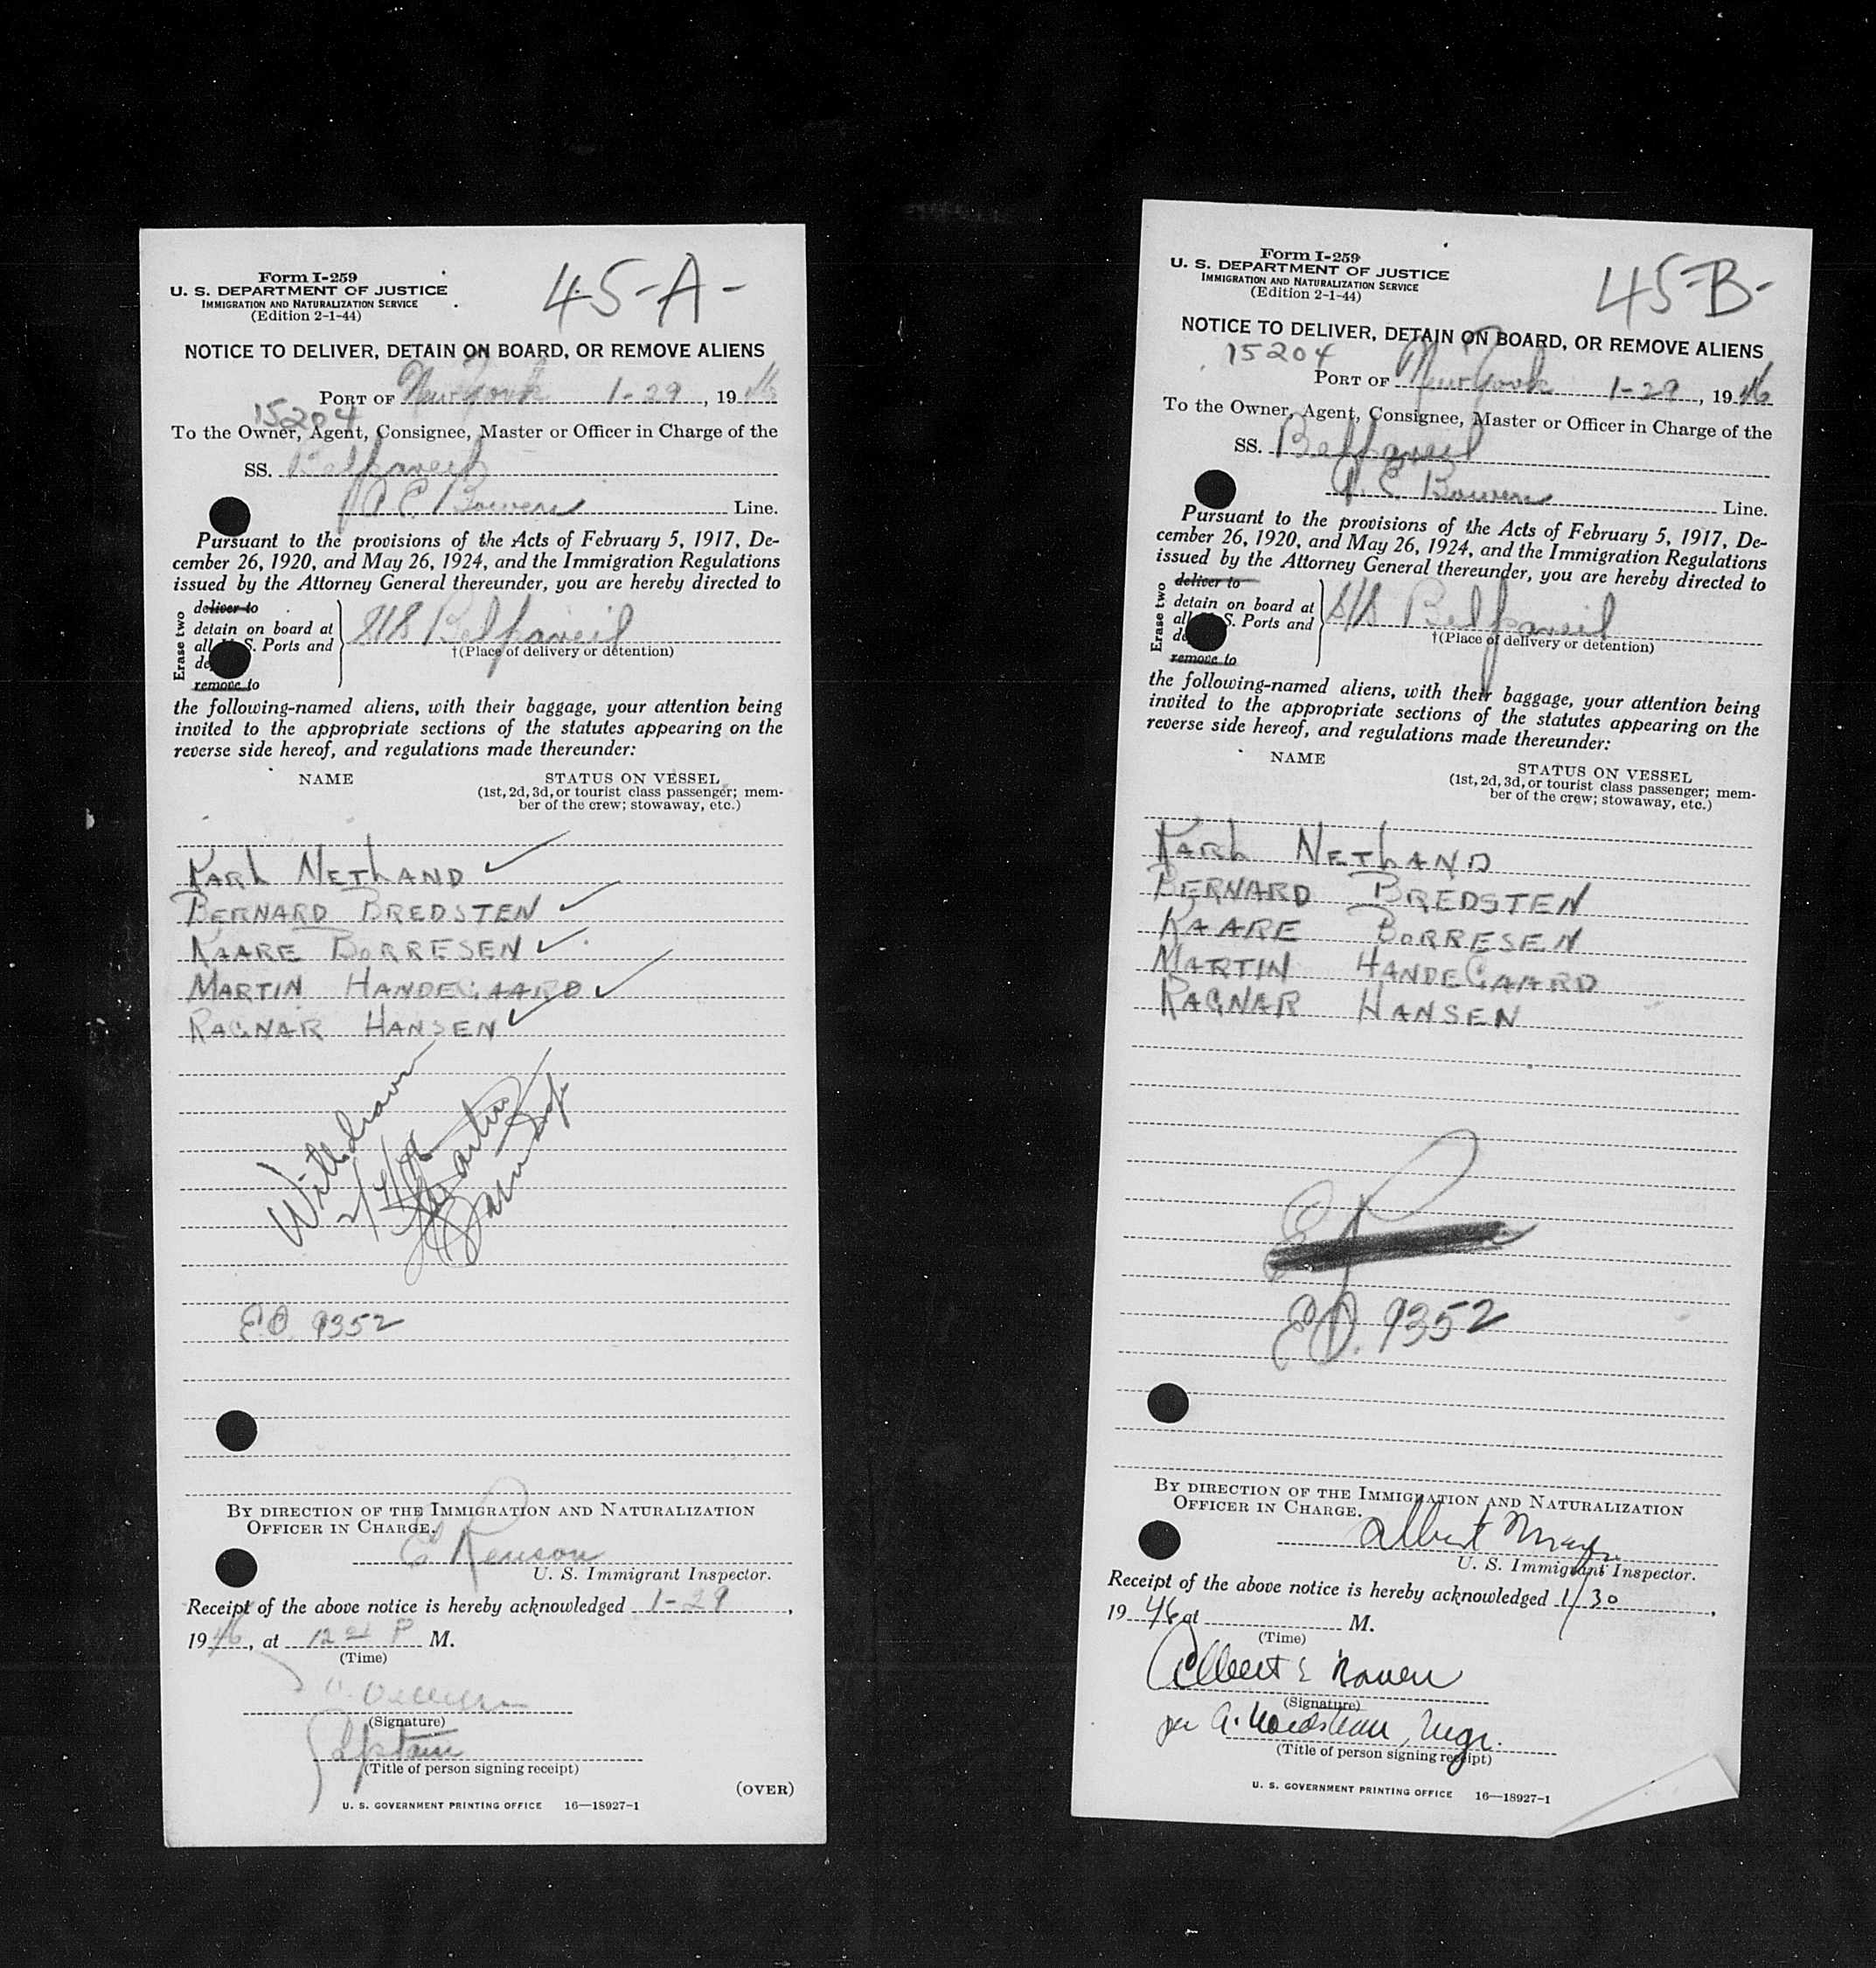 Form I-259
U. S. DEPARTMENT OF JUSTICE
IMMIGRATION AND NATURALIZATION SERVICE
(Edition 2-1-44)
45-A-
NOTICE TO DELIVER, DETAIN ON BOARD, OR REMOVE ALIENS
PORT OF New York 1-29, 1946
15204
To the Owner, Agent, Consignee, Master or Officer in Charge of the
SS. Belpareil
A E. Bowen Line.
Pursuant to the provisions of the Acts of February 5, 1917, De-
cember 26, 1920, and May 26, 1924, and the Immigration Regulations
issued by the Attorney General thereunder, you are hereby directed to
Erase two
deliver to
detain on board at
all U. S. Ports and
de
remove to
S/S Belpareil
†(Place of delivery or detention)
the following-named aliens, with their baggage, your attention being
invited to the appropriate sections of the statutes appearing on the
reverse side hereof, and regulations made thereunder:
NAME STATUS ON VESSEL
(1st, 2d, 3d, or tourist class passenger; mem-
ber of the crew; stowaway, etc.)
KARL NETLAND ✓
BERNARD BREDSTEN ✓
KAARE BORRESEN ✓
MARTIN HANDEGAARD ✓
RAGNAR HANSEN ✓
Withdrawn
2/4/46
E.O. 9352
BY DIRECTION OF THE IMMIGRATION AND NATURALIZATION
OFFICER IN CHARGE.
E Renson
U. S. Immigrant Inspector.
Receipt of the above notice is hereby acknowledged 1-29,
1946, at 12 P M.
(Time)
(Signature)
Captain
(Title of person signing receipt)
(OVER)
U. S. GOVERNMENT PRINTING OFFICE 16—18927-1
Form I-259
U. S. DEPARTMENT OF JUSTICE
IMMIGRATION AND NATURALIZATION SERVICE
(Edition 2-1-44)
45-B-
NOTICE TO DELIVER, DETAIN ON BOARD, OR REMOVE ALIENS
15204
PORT OF New York 1-29, 1946
To the Owner, Agent, Consignee, Master or Officer in Charge of the
SS. Belpareil
A. E. Bowen Line.
Pursuant to the provisions of the Acts of February 5, 1917, De-
cember 26, 1920, and May 26, 1924, and the Immigration Regulations
issued by the Attorney General thereunder, you are hereby directed to
Erase two
deliver to
detain on board at
all S. Ports and
de
remove to
S/S Belpareil
†(Place of delivery or detention)
the following-named aliens, with their baggage, your attention being
invited to the appropriate sections of the statutes appearing on the
reverse side hereof, and regulations made thereunder:
NAME STATUS ON VESSEL
(1st, 2d, 3d, or tourist class passenger; mem-
ber of the crew; stowaway, etc.)
KARL NETLAND
BERNARD BREDSTEN
KAARE BORRESEN
MARTIN HANDEGAARD
RAGNAR HANSEN
E.O. 9352
BY DIRECTION OF THE IMMIGRATION AND NATURALIZATION
OFFICER IN CHARGE.
Albert
U. S. Immigrant Inspector.
Receipt of the above notice is hereby acknowledged 1/30,
1946 at M.
(Time)
Albert E Bowen
(Signature)
per A. Mgr.
(Title of person signing receipt)
U. S. GOVERNMENT PRINTING OFFICE 16—18927-1